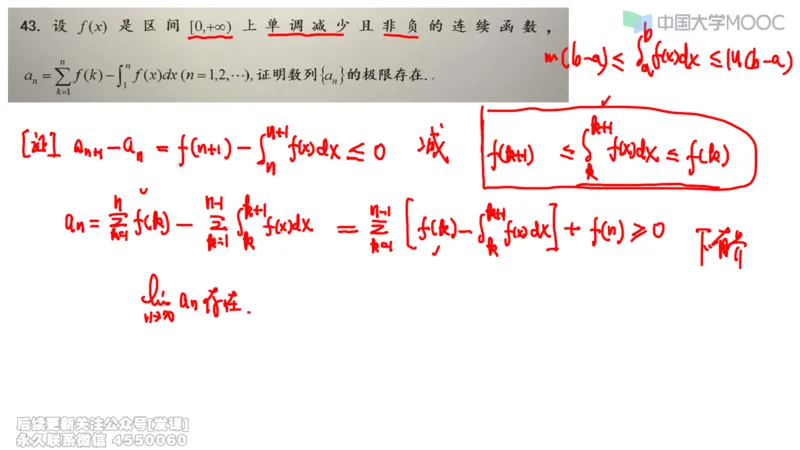 中国大学MOOC
43. 设 f(x) 是区间 [0,+∞) 上单调减少且非负的连续函数,
a_n = \sum_{k=1}^{n} f(k) - \int_1^n f(x)dx (n=1,2,⋯), 证明数列{a_n}的极限存在.
m(b-a) ≤ \int_a^b f(x)dx ≤ M(b-a)
[证] a_{n+1} - a_n = f(n+1) - \int_n^{n+1} f(x)dx ≤ 0 减
f(k+1) ≤ \int_k^{k+1} f(x)dx ≤ f(k)
a_n = \sum_{k=1}^{n} f(k) - \sum_{k=1}^{n-1} \int_k^{k+1} f(x)dx = \sum_{k=1}^{n-1} [f(k) - \int_k^{k+1} f(x)dx] + f(n) ≥ 0 下有界
\lim_{n→∞} a_n 存在.
后续更新关注公众号[发课]
永久联系微信 4550060